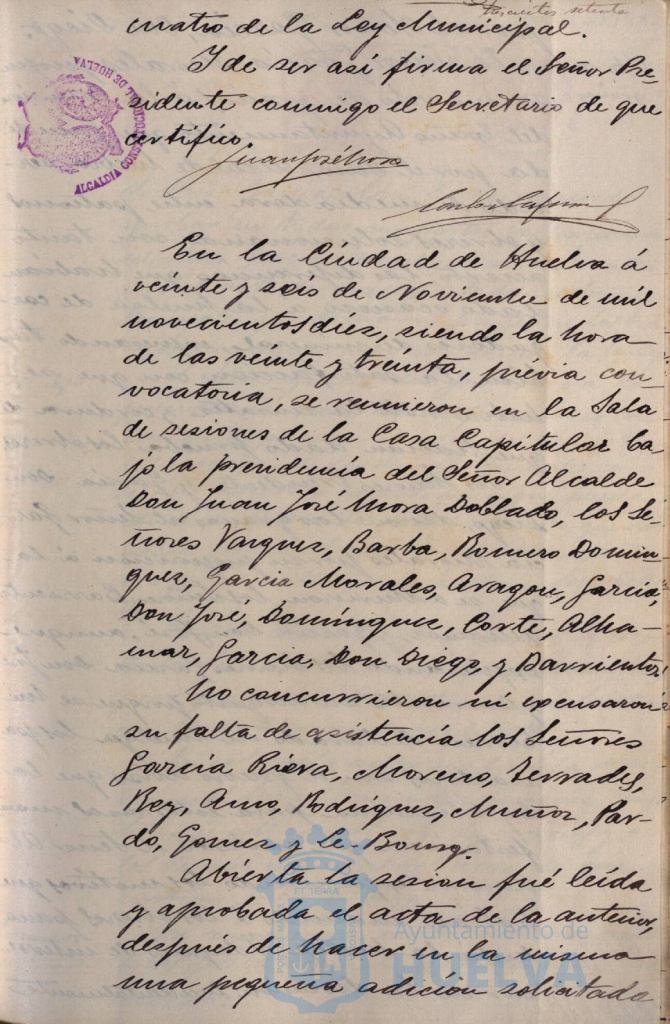 trescientos setenta
cuatro de la Ley Municipal.
Y de ser así firma el Señor Pre-
sidente conmigo el Secretario de que
certifico.
ALCALDIA CONSTITUCIONAL DE HUELVA
Juan José Mora
En la Ciudad de Huelva á
veinte y seis de Noviembre de mil
novecientos diez, siendo la hora
de las veinte y treinta, prévia con-
vocatoria, se reunieron en la Sala
de sesiones de la Casa Capitular ba
jo la presidencia del Señor Alcalde
Don Juan José Mora Doblado, los Se-
ñores Vazquez, Barba, Romero Domin-
guez, Garcia Morales, Aragon, Garcia,
Don José, Domínguez, Corte, Alha-
mar, Garcia, Don Diego, y Barrientos.
No concurrieron ni excusaron
su falta de asistencia los Señores
Garcia Riera, Moreno, Terrades,
Rey, Amo, Rodriguez, Muñoz, Par-
do, Gomez y Le-Bourg.
Abierta la sesion fué leída
y aprobada el acta de la anterior,
después de hacer en la misma
una pequeña adición solicitada
Ayuntamiento de
HUELVA